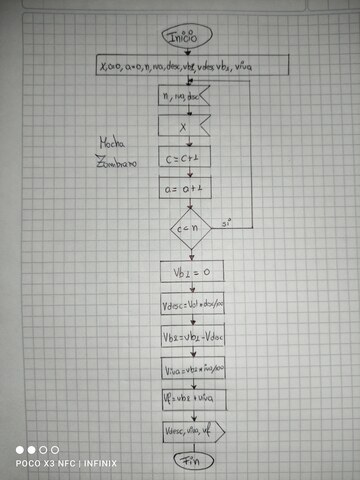 Inicio
X, c=0, a=0, n, iva, desc, vb1, vdes vb2, viva
n, iva, desc
X
Mocha
Zambrano
c = c+1
a = a+1
c = n
si
Vb1 = 0
Vdesc=Vb1*desc/100
Vb2=Vb1-Vdesc
Viva=vb2*iva/100
Vf=vb2+viva
Vdesc, viva, vf
Fin
POCO X3 NFC | INFINIX